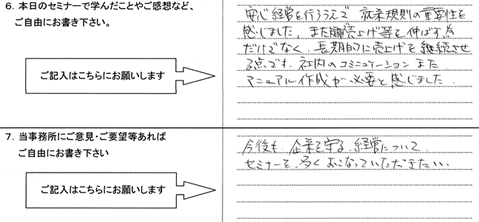 6. 本日のセミナーで学んだことやご感想など、
ご自由にお書き下さい。
ご記入はこちらにお願いします
安心経営を行ううえで 就業規則の重要性を
感じました。また 売上げ等を伸ばす為
だけでなく、長期的に売上げを継続させ
る点です。社内のコミニュケーション また
マニュアル作成が必要と感じました。
7. 当事務所にご意見・ご要望等あれば
ご自由にお書き下さい
ご記入はこちらにお願いします
今後も、企業を守る、経営について
セミナーを、多くおこなっていただきたい。